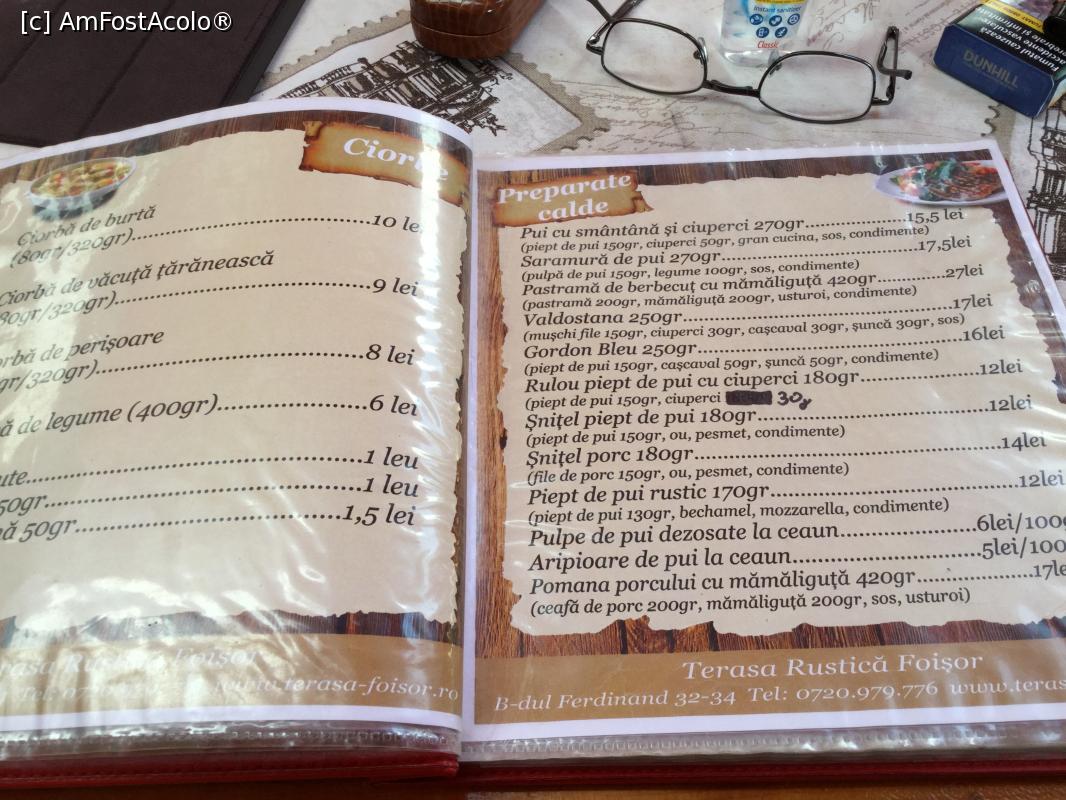 [c] AmFostAcolo®
Instant sanitizer
Classic
Fumatul cauzează
accidente vasculare
cerebrale și infirmitate
DUNHILL
Ciorbe
Ciorbă de burtă
(80gr/320gr).......................................10 lei
Ciorbă de văcuță țărănească
80gr/320gr).......................................9 lei
orbă de perișoare
gr/320gr).......................................8 lei
ă de legume (400gr).......................6 lei
ute.......................................1 leu
50gr.......................................1 leu
nă 50gr.......................................1,5 lei
Terasa Rustică Foișor
Tel: 0720 www.terasa-foisor.ro
Preparate
calde
Pui cu smântână și ciuperci 270gr...............15,5 lei
(piept de pui 150gr, ciuperci 50gr, gran cucina, sos, condimente)
Saramură de pui 270gr.............................17,5lei
(pulpă de pui 150gr, legume 100gr, sos, condimente)
Pastramă de berbecuț cu mămăliguță 420gr...........27lei
(pastramă 200gr, mămăliguță 200gr, usturoi, condimente)
Valdostana 250gr.......................................17lei
(mușchi file 150gr, ciuperci 30gr, cașcaval 30gr, șuncă 30gr, sos)
Gordon Bleu 250gr.......................................16lei
(piept de pui 150gr, cașcaval 50gr, șuncă 50gr, condimente)
Rulou piept de pui cu ciuperci 180gr...................12lei
(piept de pui 150gr, ciuperci 30g
Șnițel piept de pui 180gr.................................12lei
(piept de pui 150gr, ou, pesmet, condimente)
Șnițel porc 180gr.......................................14lei
(file de porc 150gr, ou, pesmet, condimente)
Piept de pui rustic 170gr.................................12lei
(piept de pui 130gr, bechamel, mozzarella, condimente)
Pulpe de pui dezosate la ceaun...................6lei/100g
Aripioare de pui la ceaun.........................5lei/100
Pomana porcului cu mămăliguță 420gr...............17le
(ceafă de porc 200gr, mămăliguță 200gr, sos, usturoi)
Terasa Rustică Foișor
B-dul Ferdinand 32-34 Tel: 0720.979.776 www.teras